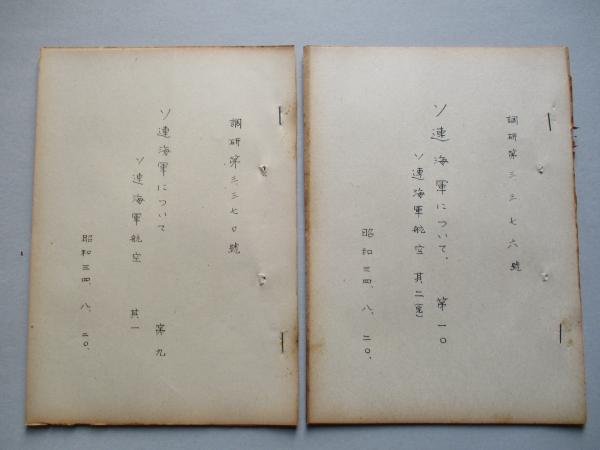 調研第三三七〇號
ソ連海軍について 第九
ソ連海軍航空 其一
昭和三四、八、二〇、
調研第三三七六號
ソ連海軍について、 第一〇
ソ連海軍航空 其二(完)
昭和三四、八、二〇、